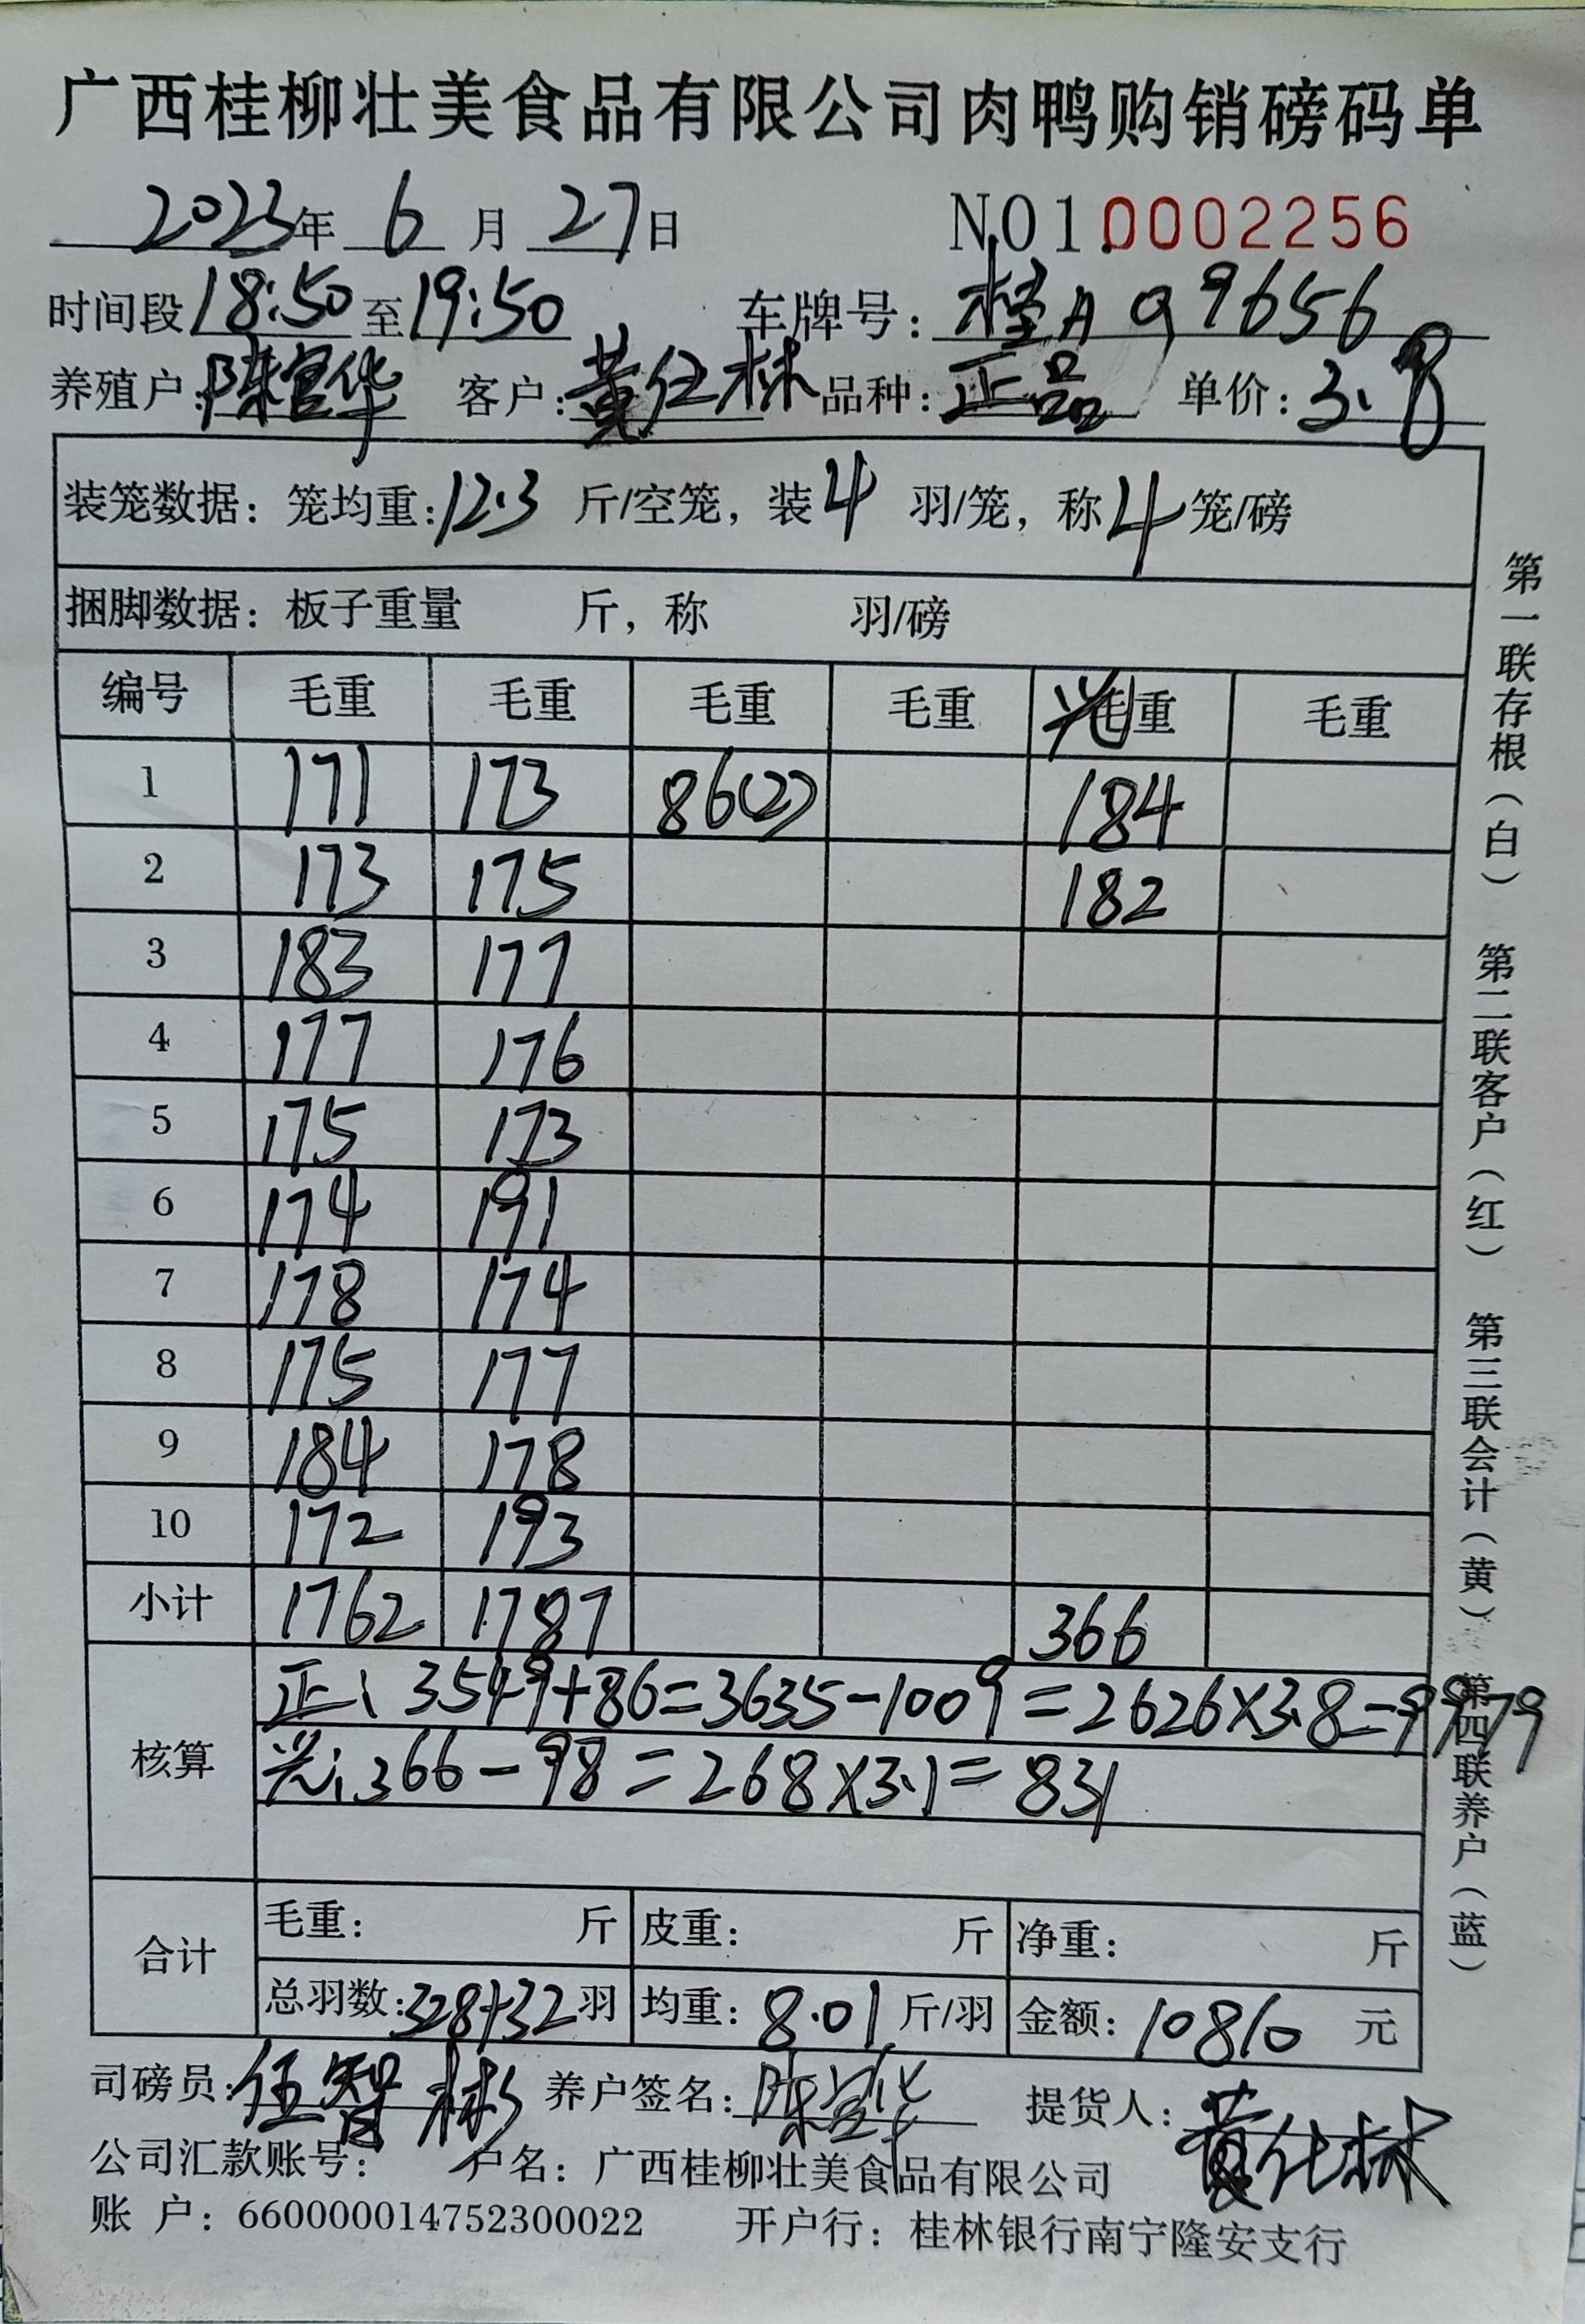 广西桂柳壮美食品有限公司肉鸭购销磅码单
2023年 6 月 27日 NO1.0002256
时间段18:50至19:50 车牌号:桂A Q9656
养殖户:陈宣华 客户:黄仕林 品种:正品 单价:3.8
装笼数据:笼均重:12.3 斤/空笼,装4 羽/笼,称4笼/磅
捆脚数据:板子重量 斤,称 羽/磅
编号 毛重 毛重 毛重 毛重 光毛重 毛重
1 171 173 86(2) 184
2 173 175 182
3 183 177
4 177 176
5 175 173
6 174 191
7 178 174
8 175 177
9 184 178
10 172 193
小计 1762 1787 366
核算
正、3549+86=3635-1009=2626×3.8=9979
光:366-98=268×3.1=831
合计
毛重: 斤 皮重: 斤 净重: 斤
总羽数:328+32羽 均重:8.01斤/羽 金额:10810 元
司磅员:伍智彬 养户签名:陈宣华 提货人:黄仕林
公司汇款账号: 户名:广西桂柳壮美食品有限公司
账 户:660000014752300022 开户行:桂林银行南宁隆安支行
第一联存根(白) 第二联客户(红) 第三联会计(黄) 第四联养户(蓝)